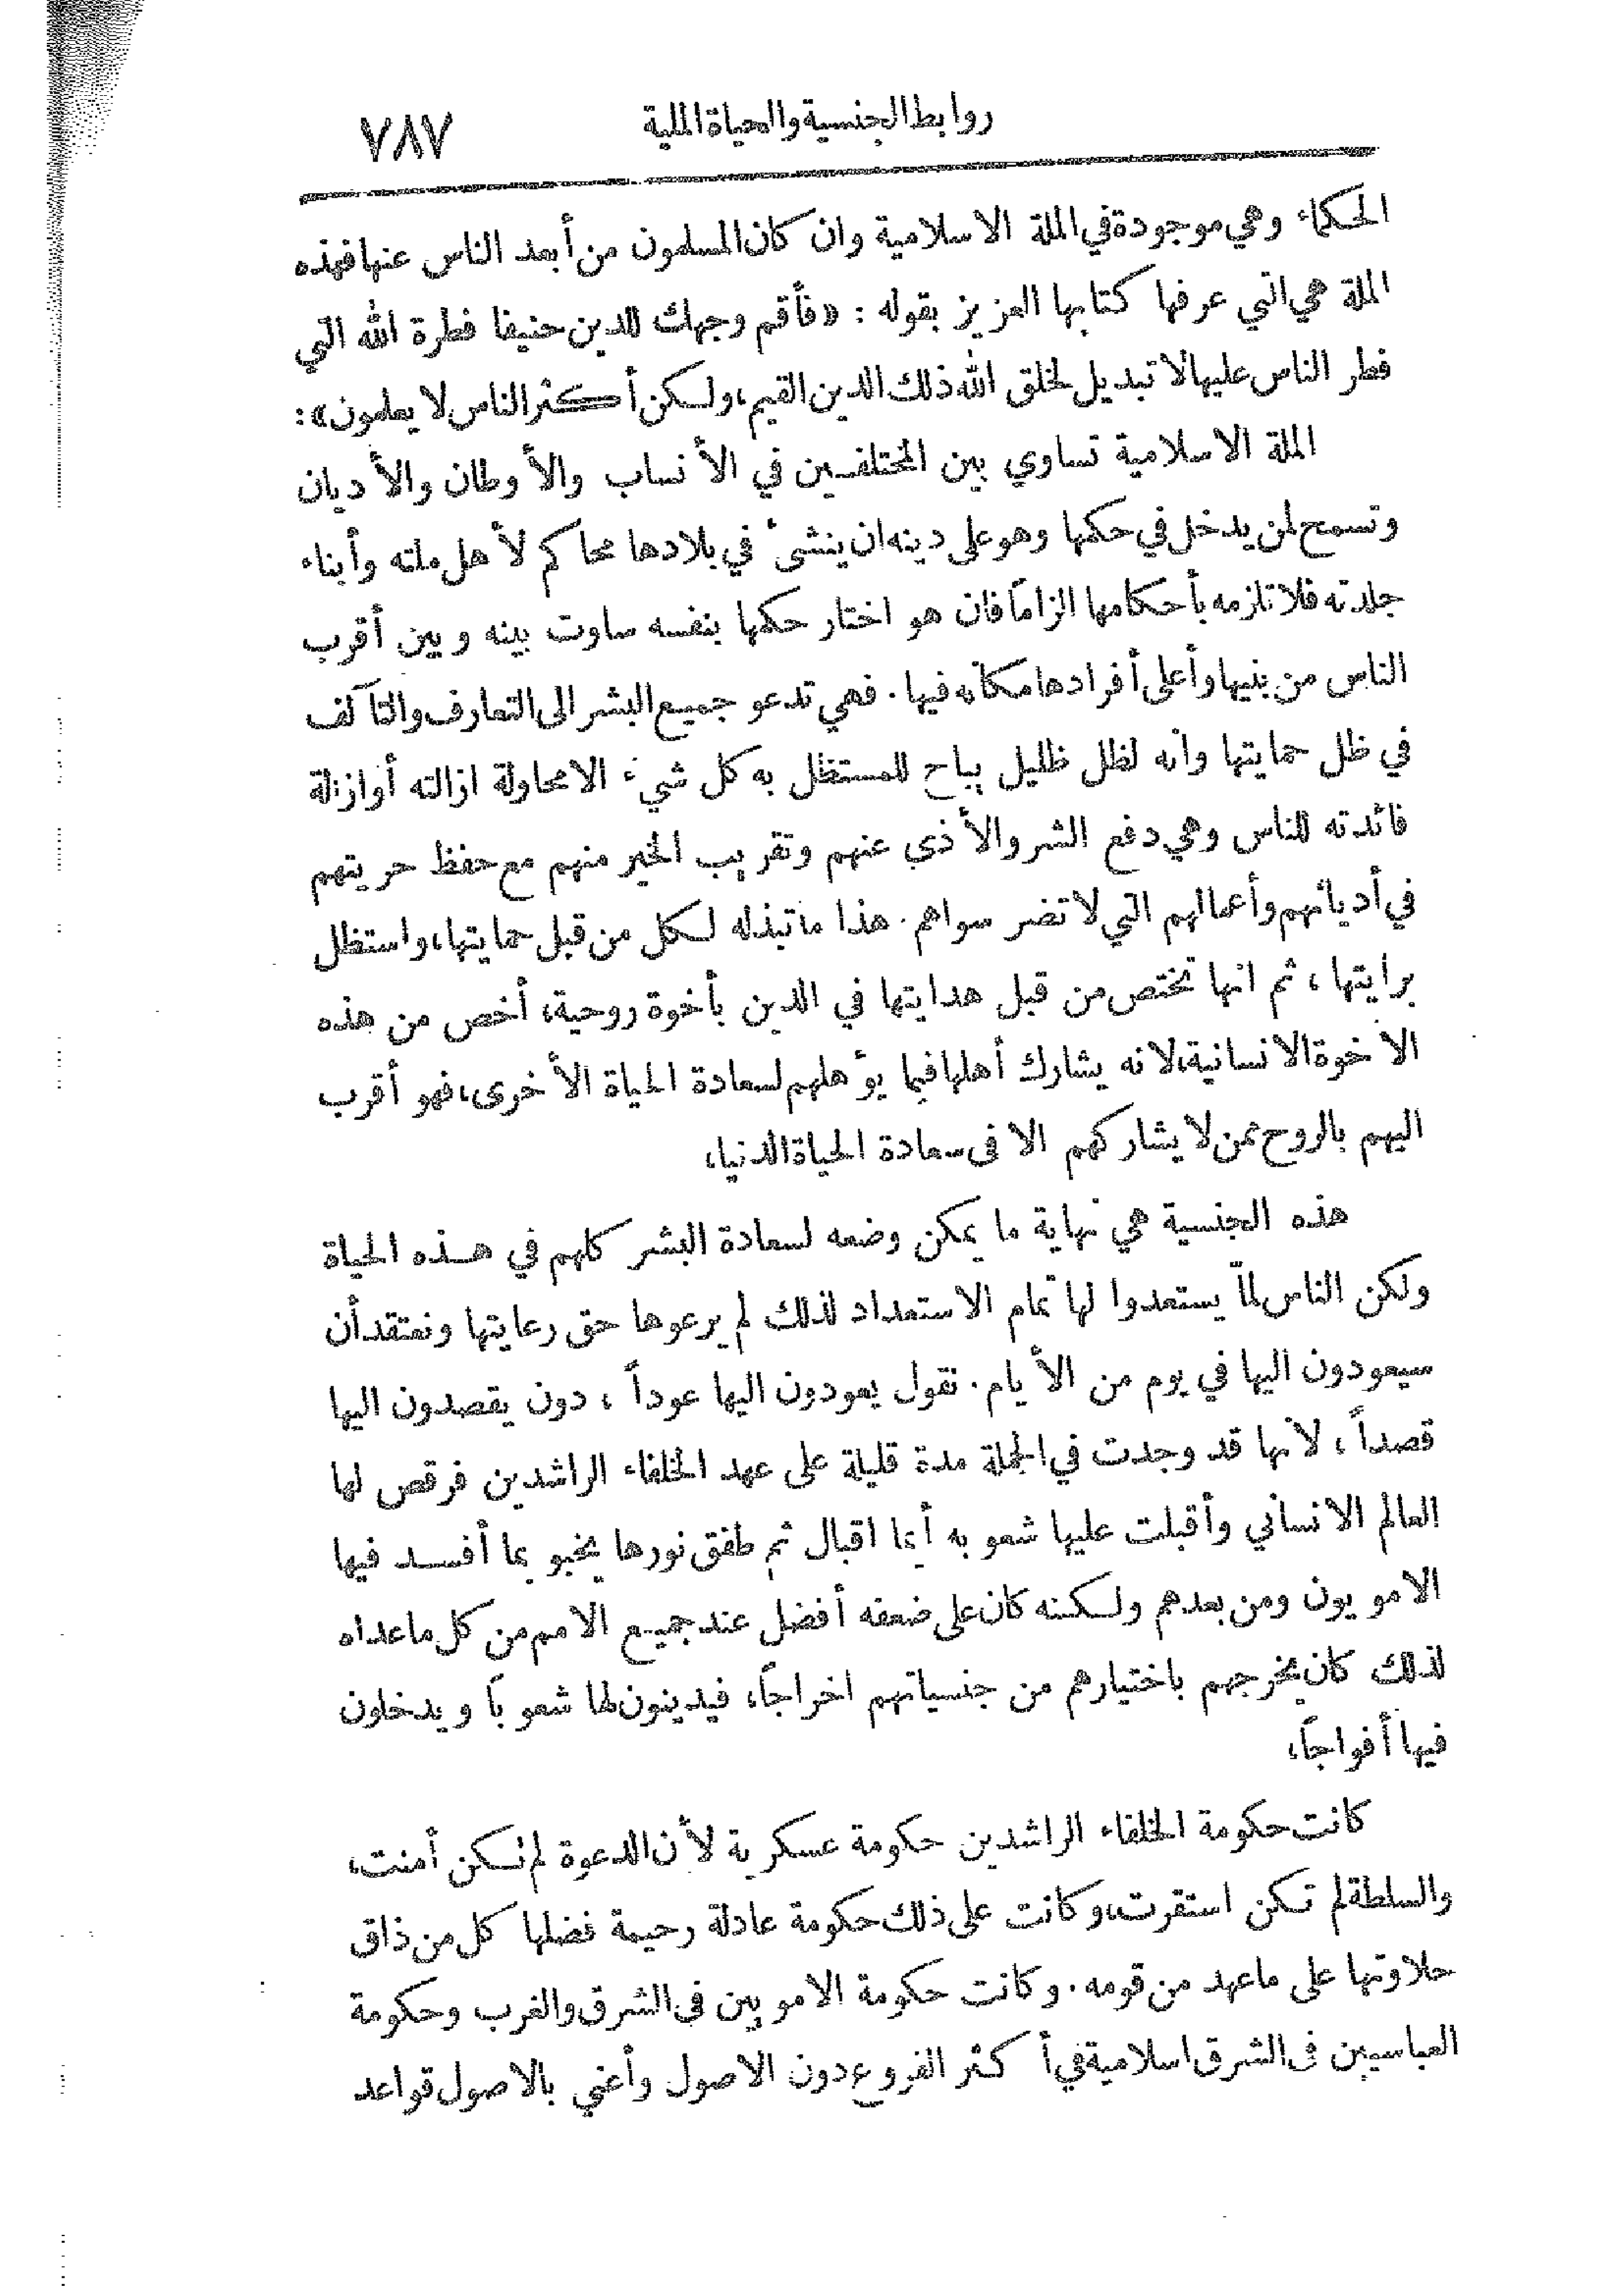 روابط الجنسية والحياة الملية ٧٨٧
الحكماء وهي موجودة في الملة الاسلامية وان كان المسلمون من أبعد الناس عنها فهذه
الملة هي التي عرفها كتابها العزيز بقوله : «فأقم وجهك للدين حنيفا فطرة الله التي
فطر الناس عليها لا تبديل لخلق الله ذلك الدين القيم، ولكن أكثر الناس لا يعلمون» :
الملة الاسلامية تساوي بين المختلفين في الأنساب والأوطان والأديان
وتسمح لمن يدخل في حكمها وهو على دينه ان ينشئ في بلادها محاكم لأهل ملته وأبناء
جلدته فلا تلزمه بأحكامها الزاماً فان هو اختار حكمها بنفسه ساوت بينه وبين أقرب
الناس من بنيها وأعلى أفرادها مكانه فيها . فهي تدعو جميع البشر الى التعارف والتآلف
في ظل حمايتها وانه لظل ظليل يباح للمستظل به كل شيء الا محاولة ازالته أو ازالة
فائدته للناس وهي دفع الشر والأذى عنهم وتقريب الخير منهم مع حفظ حريتهم
في أديانهم وأعمالهم التي لا تضر سواهم . هذا ما تبذله لكل من قبل حمايتها، واستظل
برايتها ، ثم انها تختص من قبل هدايتها في الدين بأخوة روحية، أخص من هذه
الاخوة الانسانية، لانه يشارك أهلها فيما يؤهلهم لسعادة الحياة الأخرى، فهو أقرب
اليهم بالروح ممن لا يشاركهم الا فى سعادة الحياة الدنيا،
هذه الجنسية هي نهاية ما يمكن وضعه لسعادة البشر كلهم في هذه الحياة
ولكن الناس لمّا يستعدوا لها تمام الاستعداد لذلك لم يرعوها حق رعايتها ونعتقد أن
سيعودون اليها في يوم من الأيام . نقول يعودون اليها عوداً ، دون يقصدون اليها
قصداً ، لانها قد وجدت في الجملة مدة قليلة على عهد الخلفاء الراشدين فرقص لها
العالم الانساني وأقبلت عليها شعوبه أيما اقبال ثم طفق نورها يخبو بما أفسد فيها
الامويون ومن بعدهم ولكنه كان على ضعفه أفضل عند جميع الامم من كل ما عداه
لذلك كان يخرجهم باختيارهم من جنسياتهم اخراجاً، فيدينون لها شعوباً ويدخلون
فيها أفواجاً،
كانت حكومة الخلفاء الراشدين حكومة عسكرية لأن الدعوة لم تكن أمنت،
والسلطة لم تكن استقرت، وكانت على ذلك حكومة عادلة رحيمة فضلها كل من ذاق
حلاوتها على ما عهد من قومه . وكانت حكومة الامويين فى الشرق والغرب وحكومة
العباسيين فى الشرق اسلامية في أكثر الفروع دون الاصول وأعني بالاصول قواعد